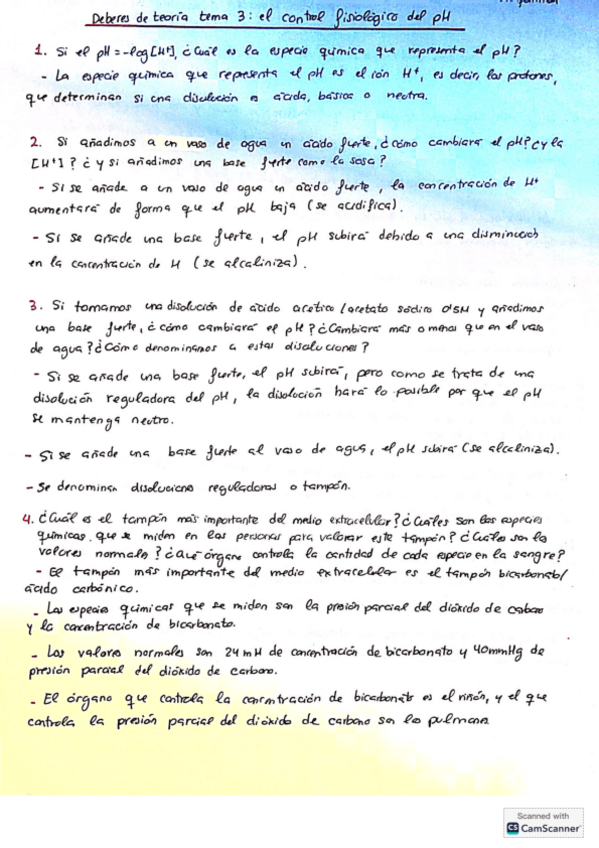 Deberes de teoría tema 3: el control fisiológico del pH
1. Si el pH = -log[H⁺], ¿Cuál es la especie química que representa el pH?
- La especie química que representa el pH es el ión H⁺, es decir, los protones,
que determinan si una disolución es ácida, básica o neutra.
2. Si añadimos a un vaso de agua un ácido fuerte, ¿cómo cambiará el pH? ¿y la
[H⁺]? ¿y si añadimos una base fuerte como la sosa?
- Si se añade a un vaso de agua un ácido fuerte, la concentración de H⁺
aumentará de forma que el pH baja (se acidifica).
- Si se añade una base fuerte, el pH subirá debido a una disminución
en la concentración de H (se alcaliniza).
3. Si tomamos una disolución de ácido acético/acetato sódico 0'5M y añadimos
una base fuerte, ¿cómo cambiará el pH? ¿Cambiará más o menos que en el vaso
de agua? ¿Cómo denominamos a estas disoluciones?
- Si se añade una base fuerte, el pH subirá, pero como se trata de una
disolución reguladora del pH, la disolución hará lo posible por que el pH
se mantenga neutro.
- Si se añade una base fuerte al vaso de agua, el pH subirá (se alcaliniza).
- Se denominan disoluciones reguladoras o tampón.
4. ¿Cuál es el tampón más importante del medio extracelular? ¿Cuáles son las especies
químicas que se miden en las personas para valorar este tampón? ¿Cuáles son los
valores normales? ¿Qué órgano controla la cantidad de cada especie en la sangre?
- El tampón más importante del medio extracelular es el tampón bicarbonato/
ácido carbónico.
- Las especies químicas que se miden son la presión parcial del dióxido de carbono
y la concentración de bicarbonato.
- Los valores normales son 24 mM de concentración de bicarbonato y 40mmHg de
presión parcial del dióxido de carbono.
- El órgano que controla la concentración de bicarbonato es el riñón, y el que
controla la presión parcial del dióxido de carbono son los pulmones.
Scanned with
CS CamScanner